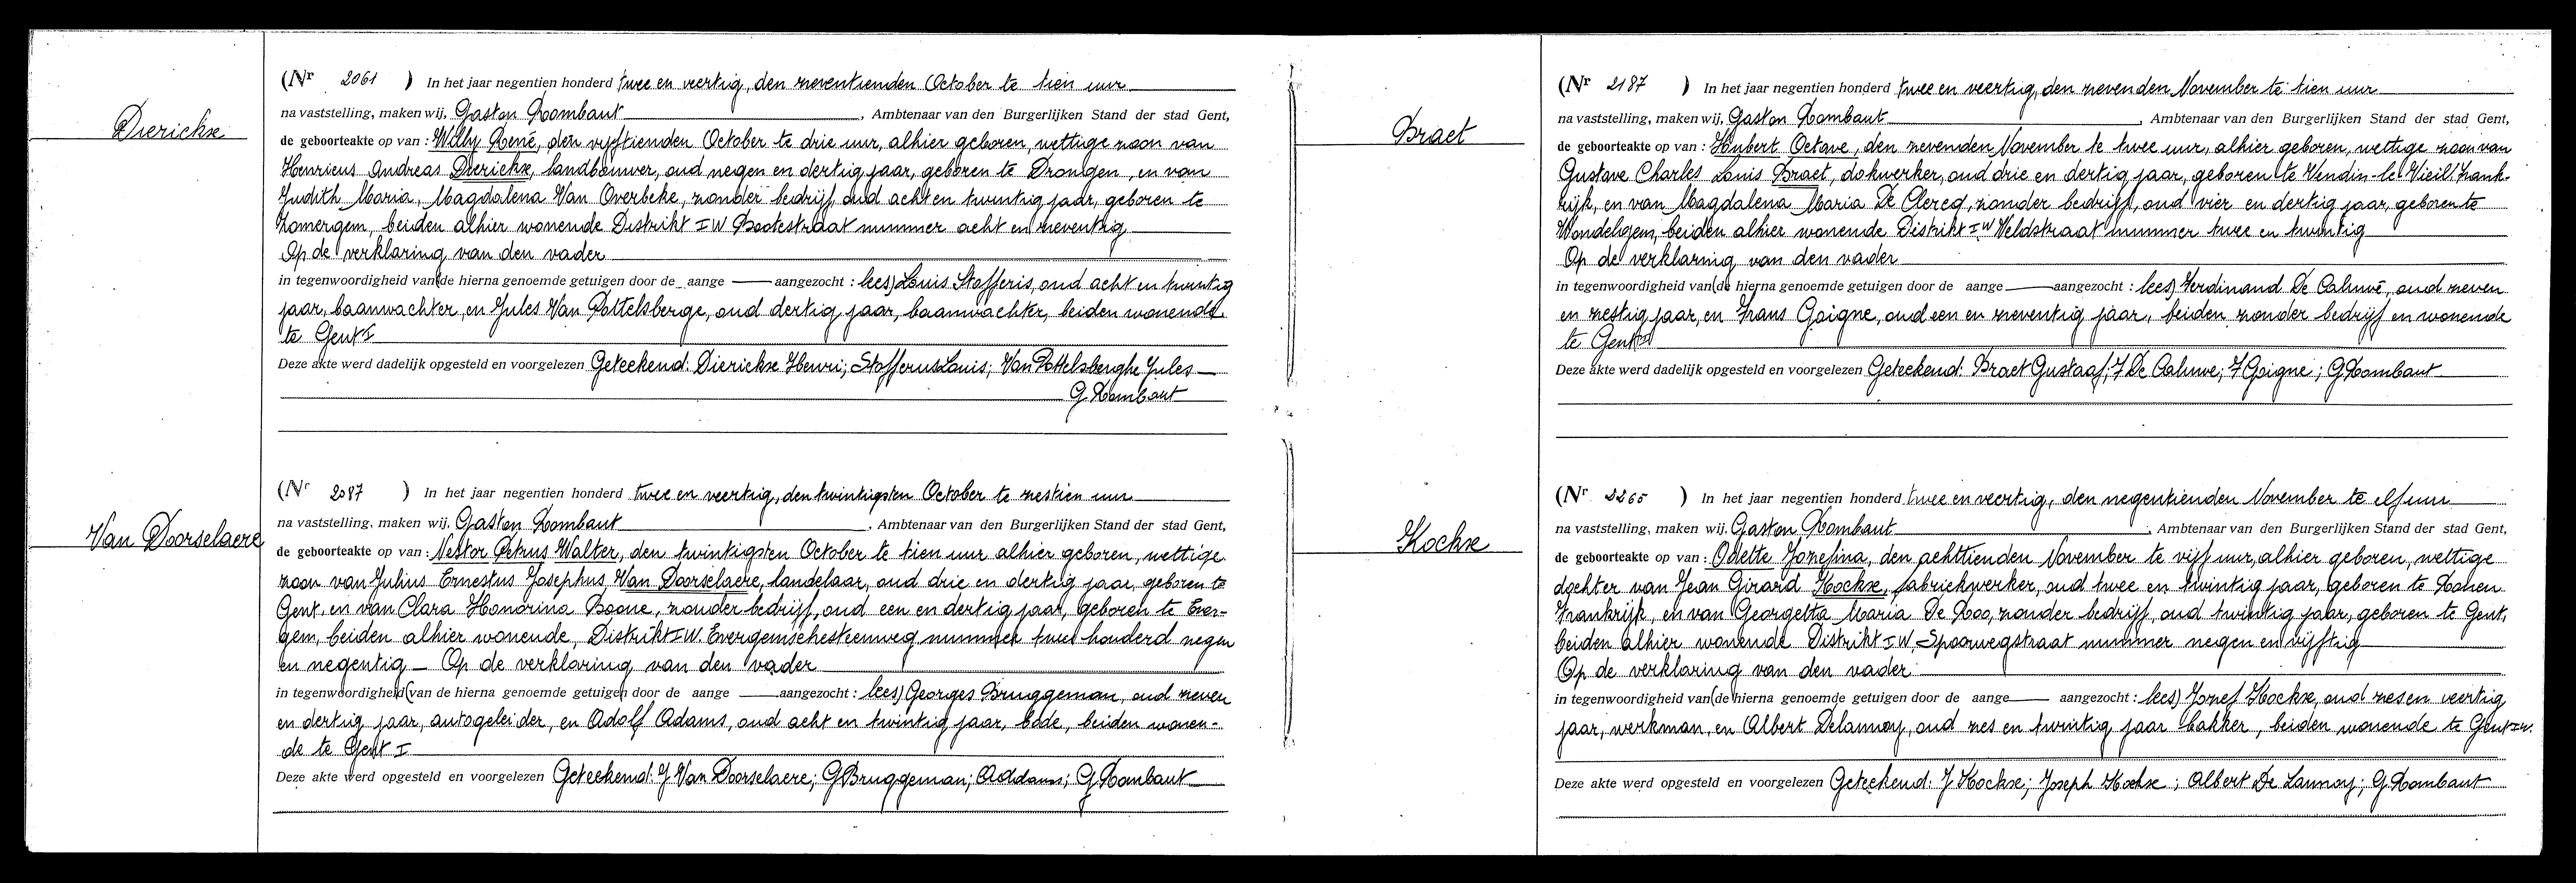 Dierickx
(Nr 2061 ) In het jaar negentien honderd twee en veertig, den zeventienden October te tien uur
na vaststelling, maken wij, Gaston Rombaut, Ambtenaar van den Burgerlijken Stand der stad Gent,
de geboorteakte op van : Willy René, den vijftienden October te drie uur, alhier geboren, wettige zoon van
Henricus Andreas Dierickx, landbouwer, oud negen en dertig jaar, geboren te Drongen, en van
Judith Maria Magdalena Van Overbeke, zonder bedrijf, oud acht en twintig jaar, geboren te
Zomergem, beiden alhier wonende Distrikt IW Bootestraat nummer acht en zeventig
Op de verklaring van den vader
in tegenwoordigheid van (de hierna genoemde getuigen door de aange — aangezocht : lees) Louis Stofferis, oud acht en twintig
jaar, baanwachter, en Jules Van Pottelsberge, oud dertig jaar, baanwachter, beiden wonende
te Gent I
Deze akte werd dadelijk opgesteld en voorgelezen Geteekend: Dierickx Henri; Stofferus Louis; Van Pottelsberghe Jules
G Rombaut
Van Doorselaere
(Nr 2087 ) In het jaar negentien honderd twee en veertig, den twintigsten October te zestien uur
na vaststelling, maken wij, Gaston Rombaut, Ambtenaar van den Burgerlijken Stand der stad Gent,
de geboorteakte op van : Nestor Petrus Walter, den twintigsten October te tien uur alhier geboren, wettige
zoon van Julius Ernestus Josephus Van Doorselaere, landelaar, oud drie en dertig jaar, geboren te
Gent, en van Clara Honorina Boone, zonder bedrijf, oud een en dertig jaar, geboren te Ever-
gem, beiden alhier wonende, Distrikt IW. Evergemschesteenweg nummer twee honderd negen
en negentig — Op de verklaring van den vader
in tegenwoordigheid (van de hierna genoemde getuigen door de aange — aangezocht : lees) Georges Bruggeman, oud zeven
en dertig jaar, autogeleider, en Adolf Adams, oud acht en twintig jaar, bode, beiden wonen-
de te Gent I
Deze akte werd opgesteld en voorgelezen Geteekend: J Van Doorselaere; G Bruggeman; A Addams; G Rombaut
Braet
(Nr 2187 ) In het jaar negentien honderd twee en veertig, den zevenden November te tien uur
na vaststelling, maken wij, Gaston Rombaut, Ambtenaar van den Burgerlijken Stand der stad Gent,
de geboorteakte op van : Hubert Octave, den zevenden November te twee uur, alhier geboren, wettige zoon van
Gustave Charles Louis Braet, dokwerker, oud drie en dertig jaar, geboren te Vendin-le-Vieil Frank-
rijk, en van Magdalena Maria De Clercq, zonder bedrijf, oud vier en dertig jaar, geboren te
Wondelgem, beiden alhier wonende Distrikt IW Weldstraat nummer twee en twintig
Op de verklaring van den vader
in tegenwoordigheid van (de hierna genoemde getuigen door de aange — aangezocht : lees) Ferdinand De Caluwé, oud zeven
en zestig jaar, en Frans Goigne, oud een en zeventig jaar, beiden zonder bedrijf en wonende
te Gent
Deze akte werd dadelijk opgesteld en voorgelezen Geteekend: Braet Gustaaf; F De Caluwe; F Goigne; G Rombaut
Kockx
(Nr 2265 ) In het jaar negentien honderd twee en veertig, den negentienden November te elf uur
na vaststelling, maken wij, Gaston Rombaut, Ambtenaar van den Burgerlijken Stand der stad Gent,
de geboorteakte op van : Odette Jozefina, den achttienden November te vijf uur, alhier geboren, wettige
dochter van Jean Girard Kockx, fabriekwerker, oud twee en twintig jaar, geboren te Rouen
Frankrijk, en van Georgetta Maria De Roo, zonder bedrijf, oud twintig jaar, geboren te Gent,
beiden alhier wonende Distrikt IW, Spoorwegstraat nummer negen en vijftig
Op de verklaring van den vader
in tegenwoordigheid van (de hierna genoemde getuigen door de aange — aangezocht : lees) Jozef Kockx, oud zes en veertig
jaar, werkman, en Albert Delannoy, oud zes en twintig jaar bakker, beiden wonende te Gent IW.
Deze akte werd opgesteld en voorgelezen Geteekend: J Kockx; Joseph Kockx; Albert De Lannoy; G Rombaut